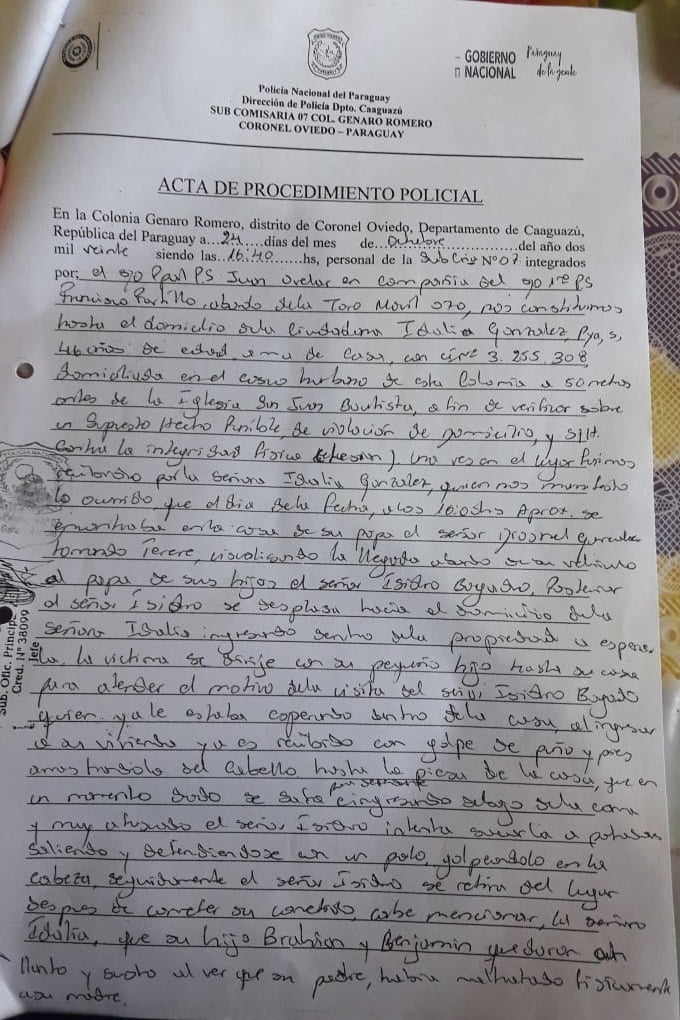 GOBIERNO
NACIONAL
Paraguay
de la gente
Policía Nacional del Paraguay
Dirección de Policía Dpto. Caaguazú
SUB COMISARIA 07 COL. GENARO ROMERO
CORONEL OVIEDO – PARAGUAY
ACTA DE PROCEDIMIENTO POLICIAL
En la Colonia Genaro Romero, distrito de Coronel Oviedo, Departamento de Caaguazú,
República del Paraguay a...24....días del mes de...octubre...................del año dos
mil veinte siendo las...16:40....hs, personal de la Sub Cria Nº07 integrados
por: el S/O Ppal PS Juan Ovelar en compañia del S/O 1º PS
Francisco Portillo, abordo de la Toro Movil 070, nos constituimos
hasta el domicilio de la Ciudadana Idalia Gonzalez, Pya, s,
46 años de edad, ama de Casa, con CI Nº 3.255.308,
domiciliada en el casco hurbano de esta Colonia a 50 metros
antes de la Iglesia San Juan Bautista, a fin de verificar sobre
un Supuesto Hecho Punible, de violación de domicilio, y SHP.
contra la integridad fisica (lesion). Una ves en el lugar fuimos
recibidos por la señora Idalia Gonzalez, quien nos manifesto
lo ocurrido, que el dia de la fecha, a las Aprox. se
encontraba en la casa de su papa el señor Gonzalez
tomando Terere, visualizando la llegada abordo de un vehiculo
al papa de sus hijos el señor Isidro Bogado, Posterior
el señor Isidro se desplasa hacia el domicilio de la
Señora Idalia ingresando dentro de la propiedad a esperar
la, la victima se dirije con su pequeño hijo hasta su casa
para atender el motivo de la visita del señor Isidro Bogado
quien ya le estaba esperando dentro de la casa, al ingresar
a su vivienda ya es recibido con golpe de puño y pies
arrastrandola del Cabello hasta la pieza de la casa, que en
un momento dado se safa ingresando debajo de la cama
y muy el señor Isidro intenta sacarla a patadas
Saliendo y defendiendose con un palo, golpeandolo en la
Cabeza, seguidamente el señor Isidro se retira del lugar
despues de cometer su cometido, cabe mencionar, la señora
Idalia, que su hijo Brahian y Benjamin quedaron en
llanto y susto al ver que su padre, habia maltratado fisicamente
a su madre.
Sub. Ofic. Principe
Cred. Nº 38099
Jefe